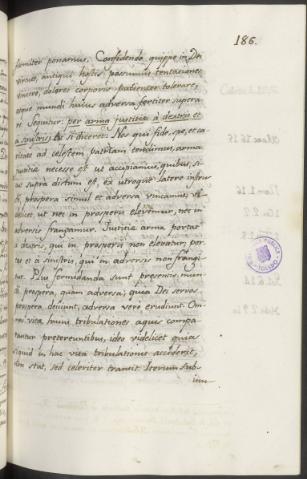 186.
firmiter ponamus. Confidendo quippe in Dei
virtute, antiqui hostis possumus tentationes
vincere, dolores corporis patienter tolerare,
omnis mundi huius adversa fortiter supera
re. Sequitur: per arma justitiæ à dextris et
à sinistris; ac si diceret: Nos qui fide, spe, et ca
ritate ad celestem patriam tendimus, arma
justitiæ necesse est ut accipiamus, quibus, si
cut supra dictum est, ex utroque latere infrui
ti, prospera simul et adversa vincamus, vi
delicet ut nec in prosperis elevemur, nec in
adversis frangamur. Justitiæ arma portat
à dextris, qui in prosperis non elevatur; por
tat et à sinistris, qui in adversis non frangi
tur. Plus formidanda sunt prospera mun
di prospera, quam adversa; quia Dei servos
prospera deiiciunt, adversa vero erudiunt. Om
nes vitæ huius tribulationes aquis compa
rantur pretereuntibus, ideo videlicet quia
quid in hac vita tribulationis acciderit,
non stat, sed celeriter transit. Iterum sub
iun